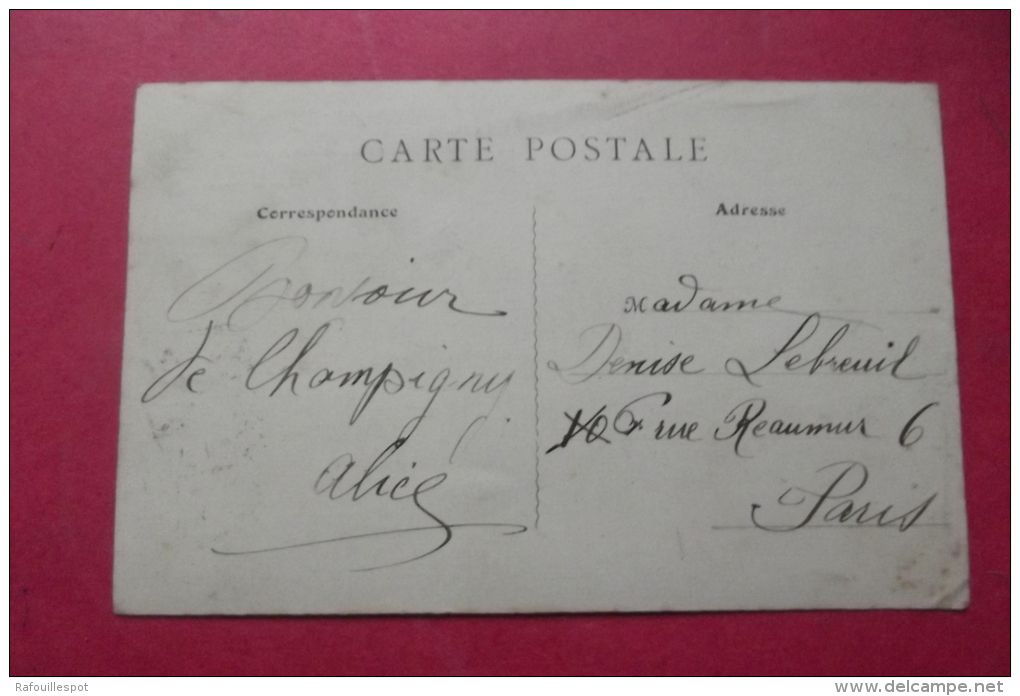 CARTE POSTALE
Correspondance
Bonsoir
de Champigny
Alice
Adresse
Madame
Denise Lebreuil
rue Reaumur 6
Paris
Rafouillespot
www.delcampe.net